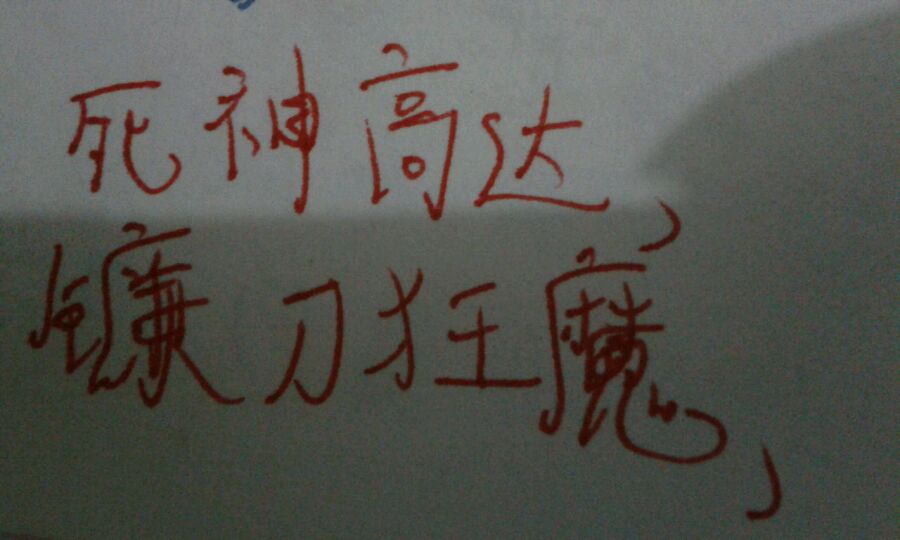 死神高达，
镰刀狂魔，